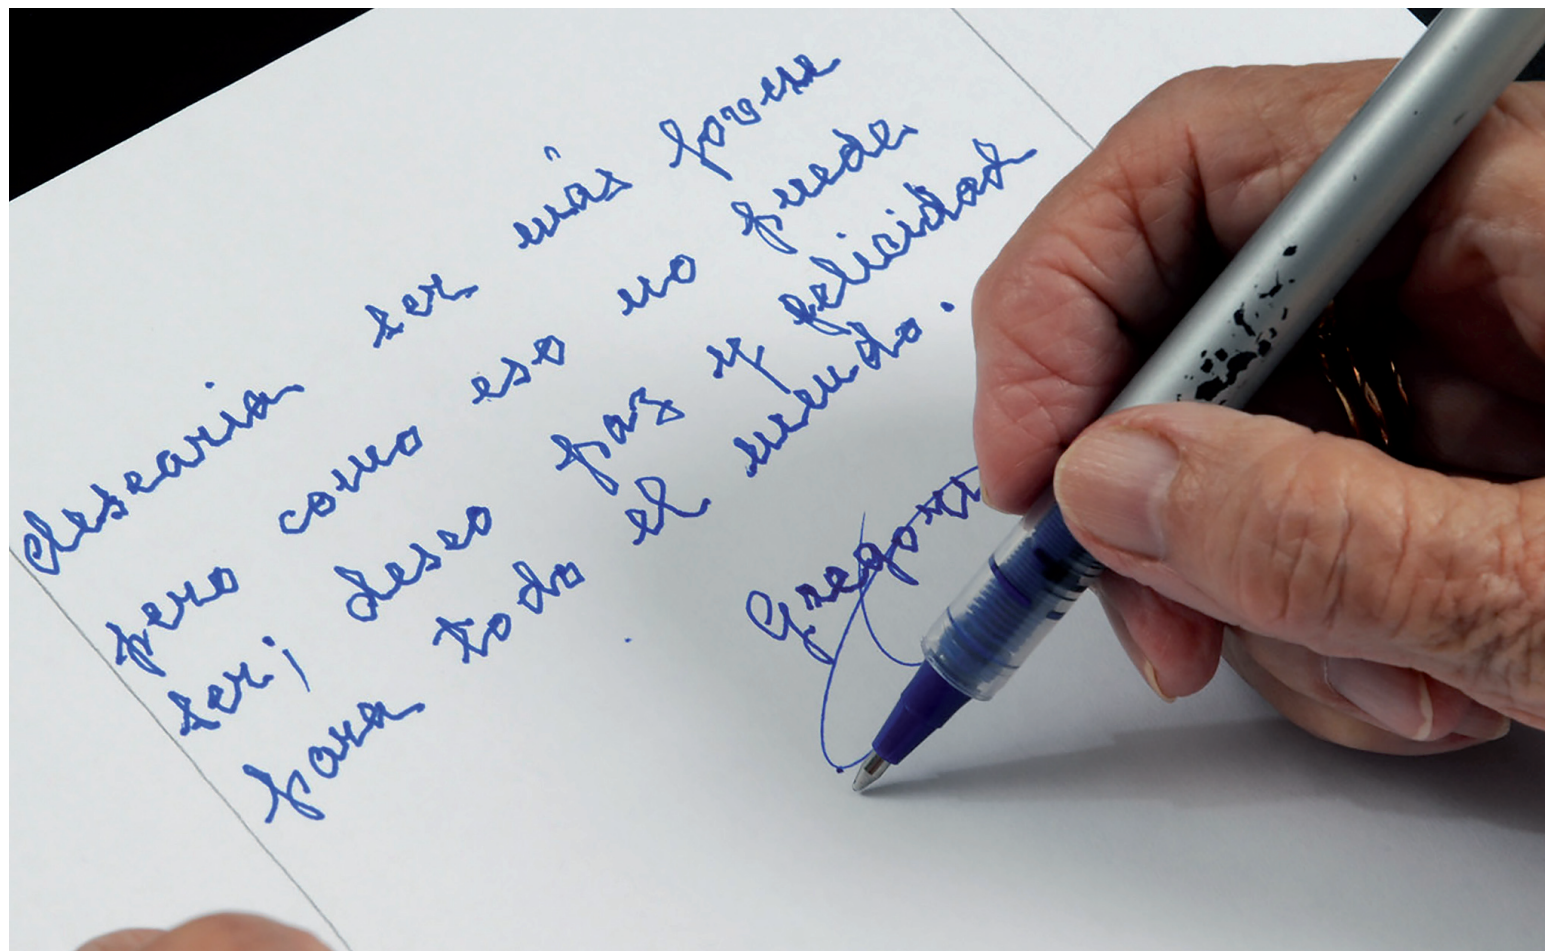 desearia ser más joven
pero como eso no puede
ser; deseo paz y felicidad
para todo el mundo.